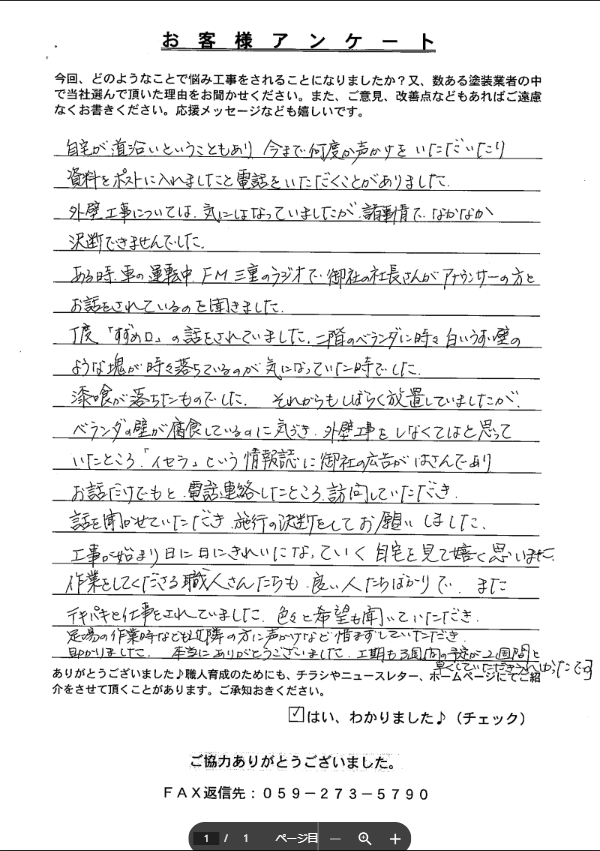 お客様アンケート
今回、どのようなことで悩み工事をされることになりましたか？又、数ある塗装業者の中
で当社選んで頂いた理由をお聞かせください。また、ご意見、改善点などもあればご遠慮
なくお書きください。応援メッセージなども嬉しいです。
自宅が道沿いということもあり 今まで何度か声かけをいただいたり
資料をポストに入れましたと電話をいただくことがありました.
外壁工事については、気にはなっていましたが、諸事情で、なかなか
決断できませんでした.
ある時、車の運転中、FM三重のラジオで、御社の社長さんがアナウンサーの方と
お話をされているのを聞きました.
丁度「すずめ口」の話をされていました、二階のベランダに時々白いうすい壁の
ような塊が時々落ちているのが気になっていた時でした.
漆喰が落ちたものでした. それからもしばらく放置していましたが、
ベランダの壁が腐食しているのに気づき、外壁工事をしなくてはと思って
いたところ「イセラ」という情報誌に御社の広告がはさんであり
お話だけでもと、電話連絡したところ、訪問していただき、
話を聞かせていただき、施行の決断をしてお願いしました、
工事が始まり日に日にきれいになっていく自宅を見て嬉しく思いました
作業をしてくださる職人さんたちも、良い人たちばかりで、また
テキパキと仕事をされていました、色々と希望も聞いていただき、
足場の作業時なども近隣の方に声かけなど惜まずしていただき、
助かりました. 本当にありがとうございました、工期も3週間の予定が2週間と
早くしていただきうれしかったです
ありがとうございました♪職人育成のためにも、チラシやニュースレター、ホームページにてご紹
介をさせて頂くことがあります。ご承知おきください。
☑はい、わかりました♪（チェック）
ご協力ありがとうございました。
ＦＡＸ返信先：０５９－２７３－５７９０
1 / 1 ページ目 － ＋